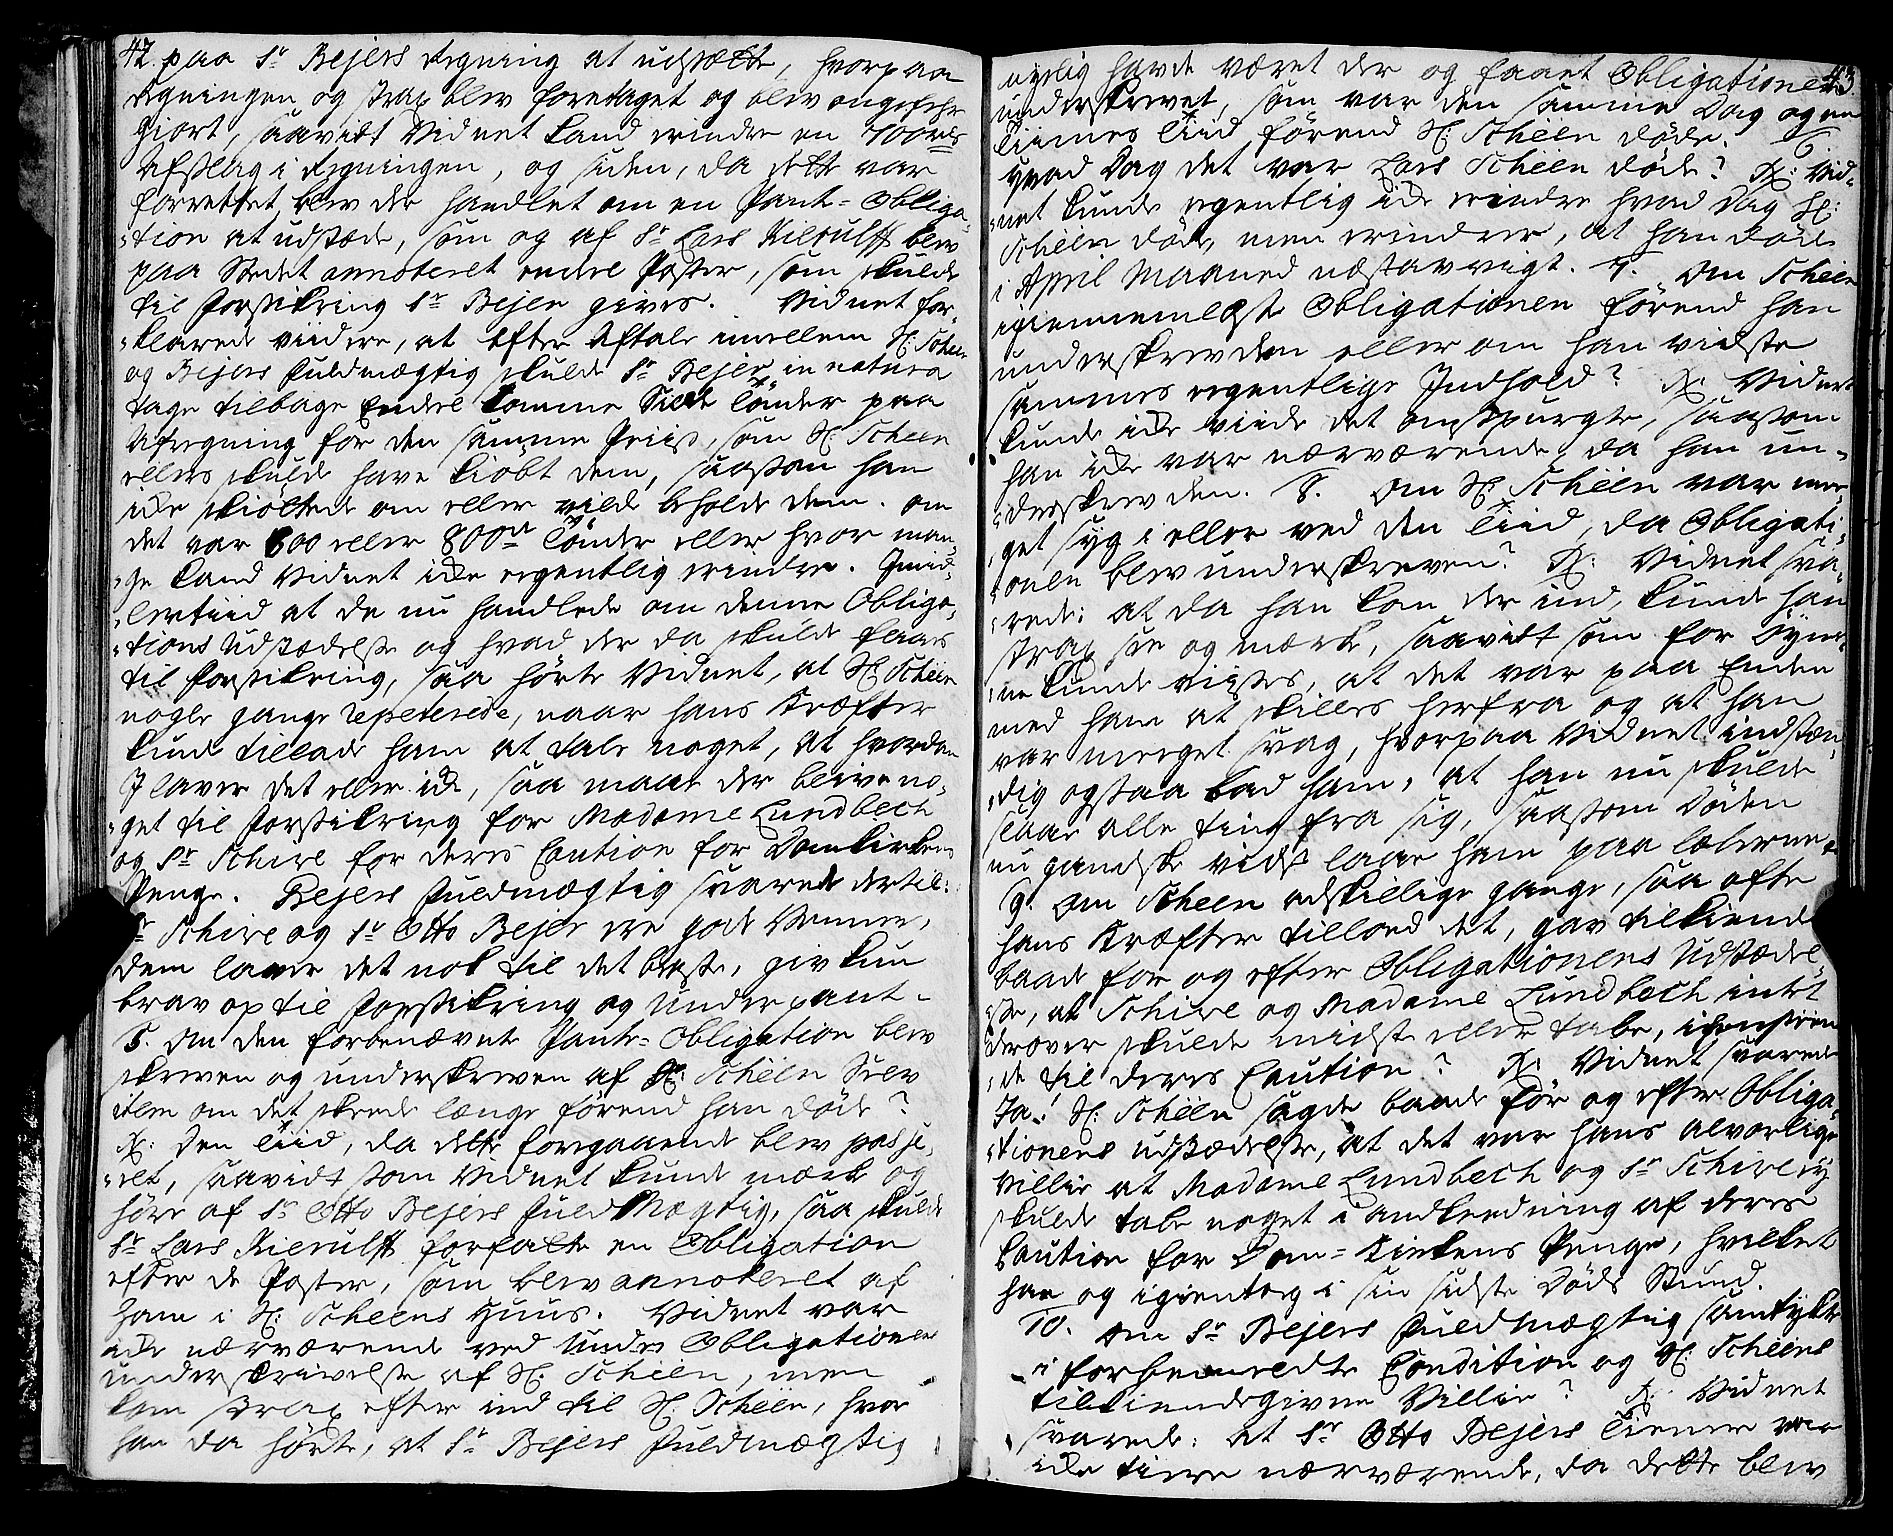 42. paa Sr Bejers Regning at udsætte, hvorpaa
Regningen og strax blev foretaget og blev ongefehr
giort, saavidt Vidnet kand erindre en 700 rdr
Afslag i Regningen, og siden, da dette var
forrettet, blev der handlet om en Pant-Obliga-
tion at udstæde, som og af Sr Lars Kierulff blev
paa Stedet annoteret endeel Poster, som skulde
til Forsikring Sr Bejer gives. Vidnet for-
klarede viidere, at efter Aftale imellem H: Scheen
og Bejers Fuldmægtig skulde Sr Bejer in natura
tage tilbage Endeel tomme Silde Tönder paa
Afregning for den samme Priis, som H: Scheen
ellers skulde have kiöbt dem, saasom han
icke skiöttede om eller vilde beholde dem. om
det var 600 eller 800de Tönder eller hvor man-
ge kand Vidnet icke egentlig erindre. Imid-
lertiid at de nu handlede om denne Obliga-
tions Udstædelse og hvad der da skulde faaes
til Forsikring, saa hörte Vidnet, at H: Schëen
nogle gange repeterede, naar hans Kræfter
kund tillade ham at tale noget, at hvordan
I laver det eller icke, saa maae der blive no-
get til Forsikring for Madame Lundbech
og Sr Schive for deres Caution for Domkirkens
Penge. Bejers Fuldmægtig svarede dertil:
Sr Schive og Sr Otto Bejer ere gode Venner,
dem laver det nok til det beste, giv kun
brav op til Forsikring og Underpant.
5. Om den forbenævnte Pante-Obligation blev
skreven og underskreven af H: Schëen Selv
item om det skeede længe förend han döde?
Rx: Den Tiid, da dette foregaaende blev passe-
ret, saavidt som Vidnet kunde mærke og
höre af Sr Otto Bejers FuldMægtig, saa skulde
Sr Lars Kierulff forfatte en Obligation
efter de Poster, som blev annoteret af
ham i H: Scheens Huus. Vidnet var
icke nærværende ved Under Obligationen
underskrivelse af H: Schëen, men
kom strax efter ind til H: Schëen, hvor
han da hörte, at Sr Bejers Fuldmægtig
43
nyelig havde været der og faaet Obligationen
underskrevet, som var den samme Dag og en
Tiimes Tiid förend H: Schëen döde. 6.
hvad Dag det var Lars Schëen döde? Rx: Vid-
net kunde egentlig icke erindre hvad Dag H:
Schëen döde, men erindrer, at han döde
i April Maaned næstafvigt. 7. Om Schëen
igiennemlæste Obligationen förend han
underskrev den eller om han vidste
sammes egentlige Indhold? Rx: Vidnet
kunde icke viide det omspurgte, saasom
han icke var nærværende, da han un-
derskrev den. 8. Om H: Schëen var me-
get syg i eller ved den Tiid, da Obligati-
onen blev underskreven? Rx: Vidnet sva-
rede: at da han kom der ind, kunde han
strax see og mærke, saavidt som for Öyne-
ne kunde viises, at det var paa Enden
med ham at skilles herfra og at han
var meeget svag, hvorpaa Vidnet indstæn-
dig ogsaa bad ham, at han nu skulde
slaae alle ting fra sig, saasom Döden
nu gandske vidst laae ham paa læberne.
9. Om Scheen adskillige gange, saa ofte
hans Kræfter tillod det, gav tilkiende
baade for og efter Obligationens Udstædel-
se, at Schive og Madame Lundbech intet
derover skulde miste eller tabe,
de til deres Caution? Rx: Vidnet svarede
Ja! H: Schëen sagde baade för og efter Obliga-
tionens udstædelse, at det var hans alvorlige
Villie at Madame Lundbech og Sr Schive ey
skulde tabe noget i andleedning af deres
Caution for Dom-Kirkens Penge, hvilket
han og igientog i sin sidste Döds Stund.
10. Om Sr Bejers Fuldmægtig samtykte
i forbemeldte Condition og H: Schëens
tilkiendegivne Villie? Rx: Vidnet
svarede: at Sr Otto Bejers Tienere var
icke tiere nærværende, da dette blev